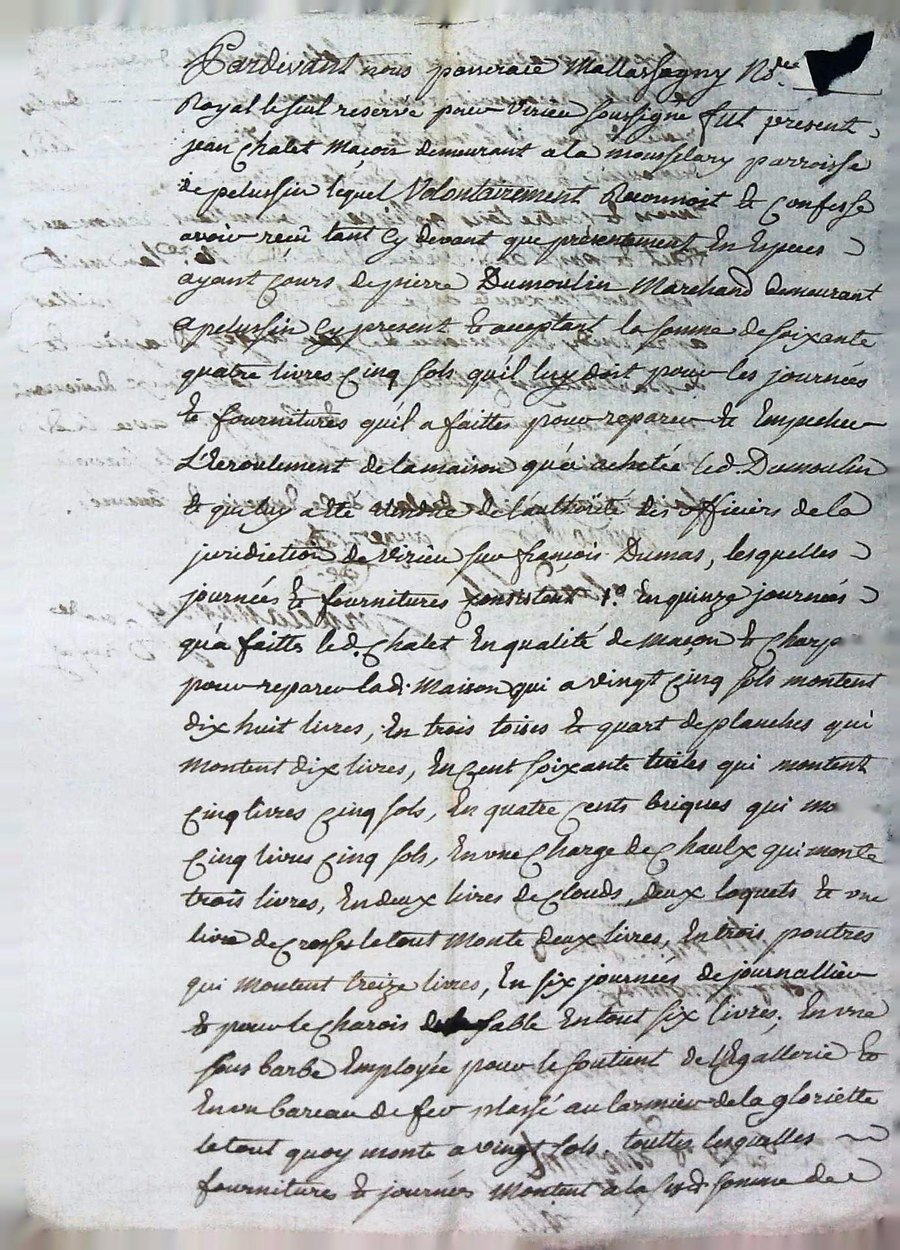 Pardevant nous Mallassagny No.re
Royal le seul reservé pour Virieu soussigné fut présent
jean Chalet Maçon demeurant a la parroisse
de pelussin lequel Volontairement Reconnoit & Confesse
avoir reçû tant Cy devant que présentement En Especes
ayant Cours de pierre Dumoulin Marchand demeurant
a pelussin Cy present & aceptant la somme de soixante
quatre livres Cinq sols qu'il luy doit pour les journées
& fournitures qu'il a faittes pour reparer & Empecher
L'Ecroulement de la maison qu'a achetée led. Dumoulin
& qui luy a été vendue de l'authorité des officiers de la
juridiction de Virieu sur françois Dumas, lesquelles
journées & fournitures Consistent 1.o En quinze journées
qu'a faittes led. Chalet En qualité de Maçon & Charp
pour reparer lad. Maison qui a vingt Cinq sols montent
dix huit livres, En trois toises & quart de planches qui
Montent dix livres, En Cent soixante tuiles qui montent
Cinq livres Cinq sols, En quatre Cents briques qui mo
Cinq livres Cinq sols, En vne Charge de Chaulx qui monte
trois livres, En deux livres de Clouds, deux loquets & vne
livre de le tout Monte deux livres, En trois poutres
qui Montent treize livres, En six journées de journallier
& pour le Charois de sable En tout six livres, En vne
sous barbe Employée pour le soutient de l'Egallerie &
En vn bareau de fer plassé au larmier de la gloriette
le tout quoy monte a vingt sols, touttes lesquelles
fournitures & journées Montent a la susd. somme de